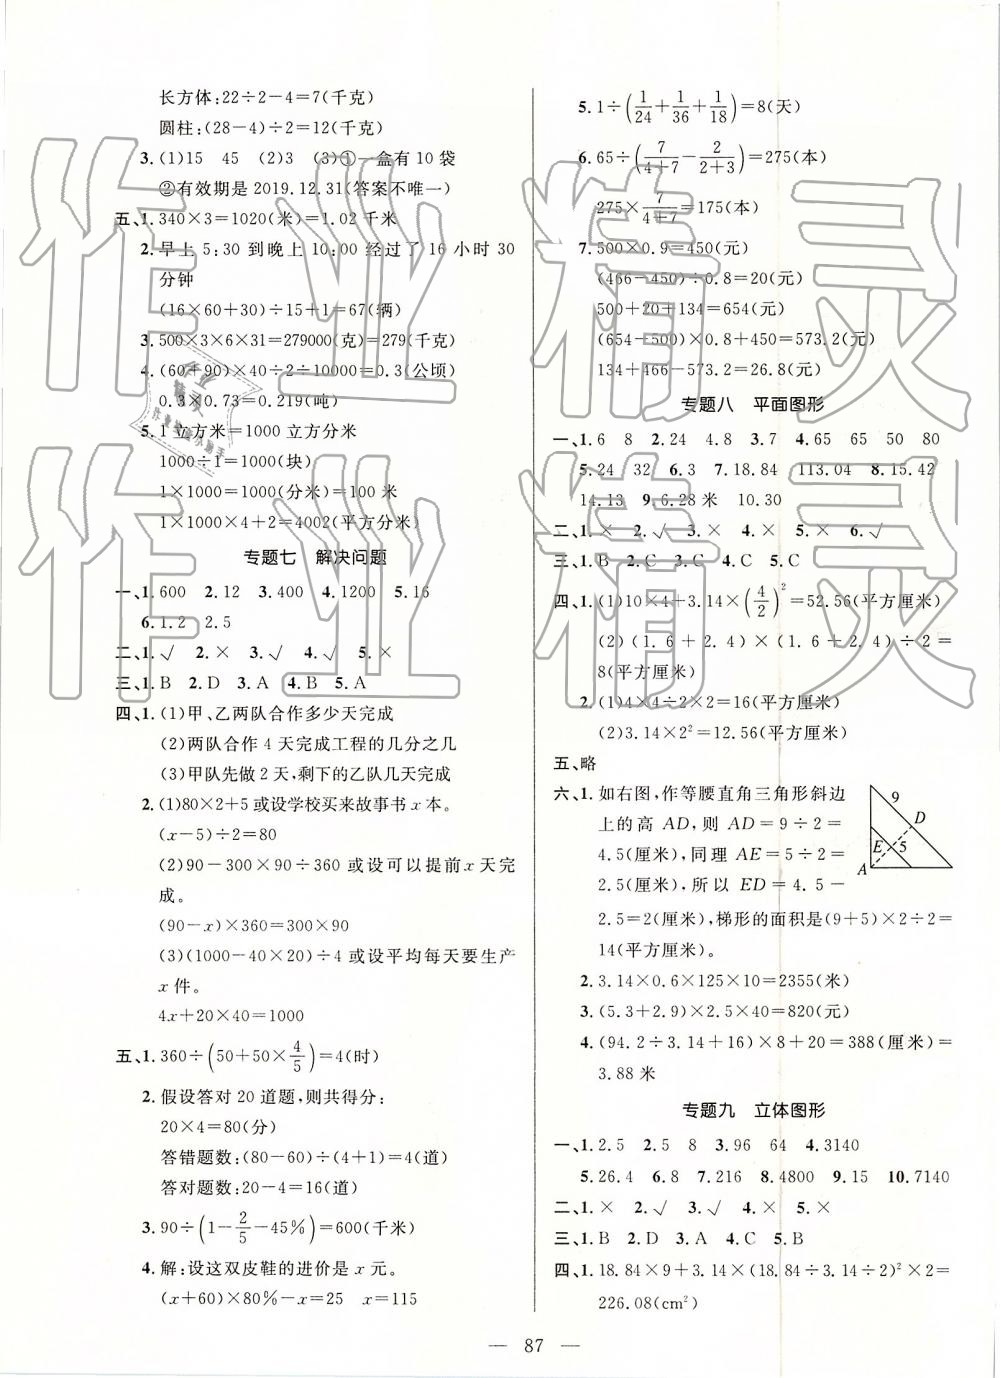 长方体:22÷2-4=7(千克)
圆柱:(28-4)÷2=12(千克)
3.(1)15 45 (2)3 (3)①一盒有10袋
②有效期是2019.12.31(答案不唯一)
五、1.340×3=1020(米)=1.02千米
2.早上5:30到晚上10:00经过了16小时30
分钟
(16×60+30)÷15+1=67(辆)
3.500×3×6×31=279000(克)=279(千克)
4.(60+90)×40÷2÷10000=0.3(公顷)
0.3×0.73=0.219(吨)
5.1立方米=1000立方分米
1000÷1=1000(块)
1×1000=1000(分米)=100米
1×1000×4+2=4002(平方分米)
专题七 解决问题
一、1.600 2.12 3.400 4.1200 5.16
6.1.2 2.5
二、1.√ 2.× 3.√ 4.√ 5.×
三、1.B 2.D 3.A 4.B 5.A
四、1.(1)甲、乙两队合作多少天完成
(2)两队合作4天完成工程的几分之几
(3)甲队先做2天,剩下的乙队几天完成
2.(1)80×2+5或设学校买来故事书x本。
(x-5)÷2=80
(2)90-300×90÷360或设可以提前x天完
成。
(90-x)×360=300×90
(3)(1000-40×20)÷4或设平均每天要生产
x件。
4x+20×40=1000
五、1.360÷(50+50×4/5)=4(时)
2.假设答对20道题,则共得分:
20×4=80(分)
答错题数:(80-60)÷(4+1)=4(道)
答对题数:20-4=16(道)
3.90÷(1-2/5-45%)=600(千米)
4.解:设这双皮鞋的进价是x元。
(x+60)×80%-x=25 x=115
5.1÷(1/24+1/36+1/18)=8(天)
6.65÷(7/(4+7)-2/(2+3))=275(本)
275×7/(4+7)=175(本)
7.500×0.9=450(元)
(466-450)÷0.8=20(元)
500+20+134=654(元)
(654-500)×0.8+450=573.2(元)
134+466-573.2=26.8(元)
专题八 平面图形
一、1.6 8 2.24 4.8 3.7 4.65 65 50 80
5.24 32 6.3 7.18.84 113.04 8.15.42
14.13 9.6.28米 10.30
二、1.× 2.√ 3.× 4.× 5.× 6.√
三、1.B 2.C 3.C 4.C 5.C
四、1.(1)10×4+3.14×(4/2)²=52.56(平方厘米)
(2)(1.6+2.4)×(1.6+2.4)÷2=
8(平方厘米)
2.(1)4×4÷2×2=16(平方厘米)
(2)3.14×2²=12.56(平方厘米)
五、略
六、1.如右图,作等腰直角三角形斜边
上的高AD,则AD=9÷2=
4.5(厘米),同理AE=5÷2=
2.5(厘米),所以ED=4.5-
2.5=2(厘米),梯形的面积是(9+5)×2÷2=
14(平方厘米)。
9
D
E
5
A
2.3.14×0.6×125×10=2355(米)
3.(5.3+2.9)×2.5×40=820(元)
4.(94.2÷3.14+16)×8+20=388(厘米)=
3.88米
专题九 立体图形
一、1.2.5 2.5 8 3.96 64 4.3140
5.26.4 6.8 7.216 8.4800 9.15 10.7140
二、1.× 2.√ 3.√ 4.× 5.×
三、1.B 2.D 3.A 4.C 5.B
四、1.18.84×9+3.14×(18.84÷3.14÷2)²×2=
226.08(cm²)
— 87 —
作业精灵
作业精灵